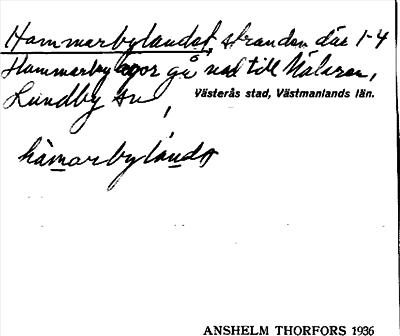 Hammarbylandet, stranden där 1-4
Hammarby ägor gå ned till Mälaren,
Lundby sn, Västerås stad, Västmanlands län.
hàmarbylánds
ANSHELM THORFORS 1936